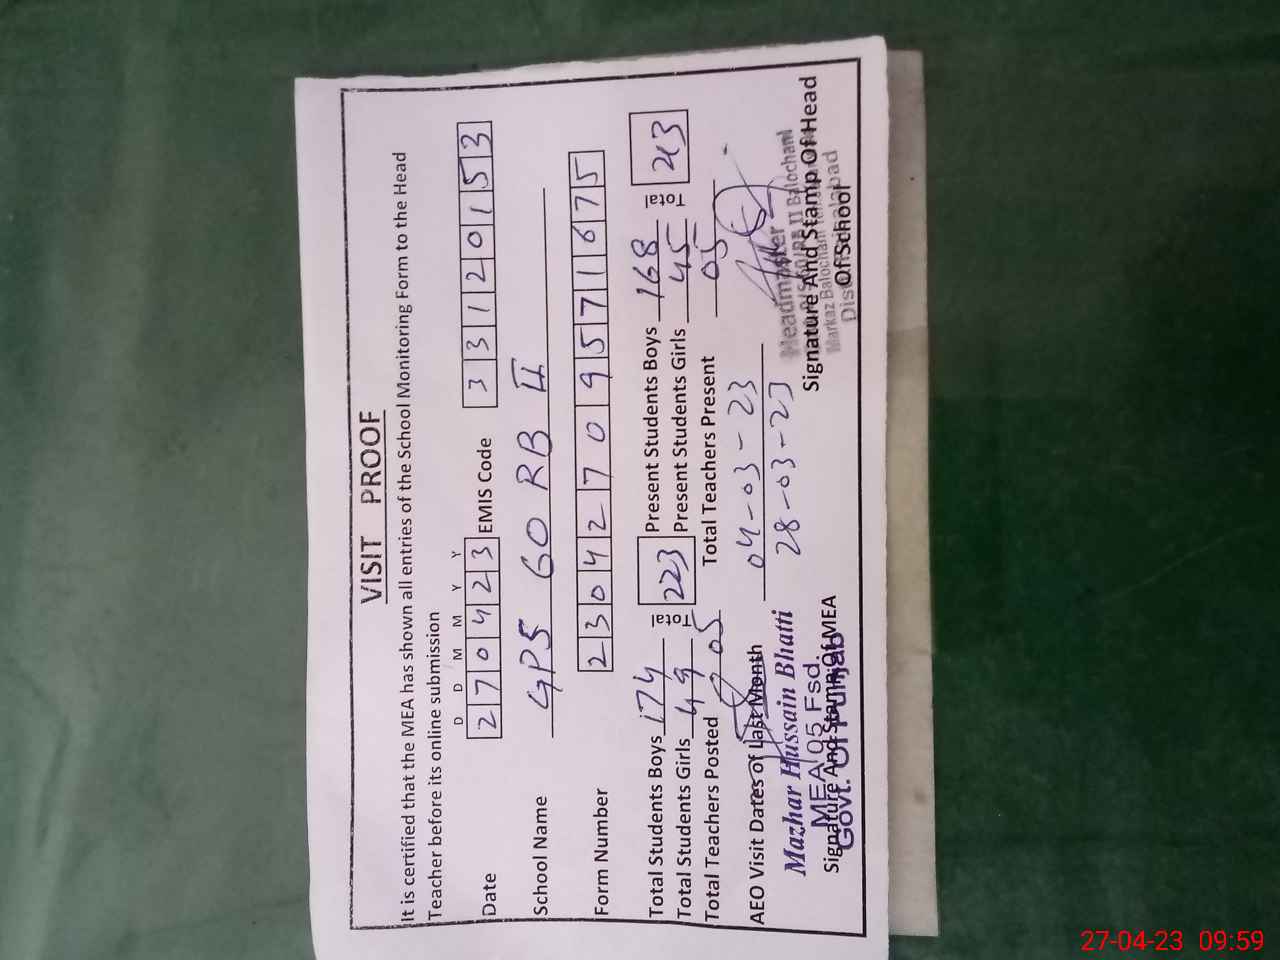 VISIT PROOF
It is certified that the MEA has shown all entries of the School Monitoring Form to the Head
Teacher before its online submission
D D M M Y Y
Date 2 7 0 4 2 3 EMIS Code 3 3 1 2 0 1 5 3
School Name GPS 60 RB II
Form Number 2 3 0 4 2 7 0 9 5 7 1 6 7 5
Total Students Boys 174 Total 223 Present Students Boys 168 Total 213
Total Students Girls 49 Total Present Students Girls 45 Total
Total Teachers Posted 05 Total Teachers Present 05
AEO Visit Dates of Last Month 04-03-23
28-03-23
Mazhar Hussain Bhatti
MEA 05 Fsd.
Govt. Of Punjab
Signature And Stamp Of MEA
Headmaster
II Balochani
Markaz Balochani
Signature And Stamp Of Head
Of School
27-04-23 09:59